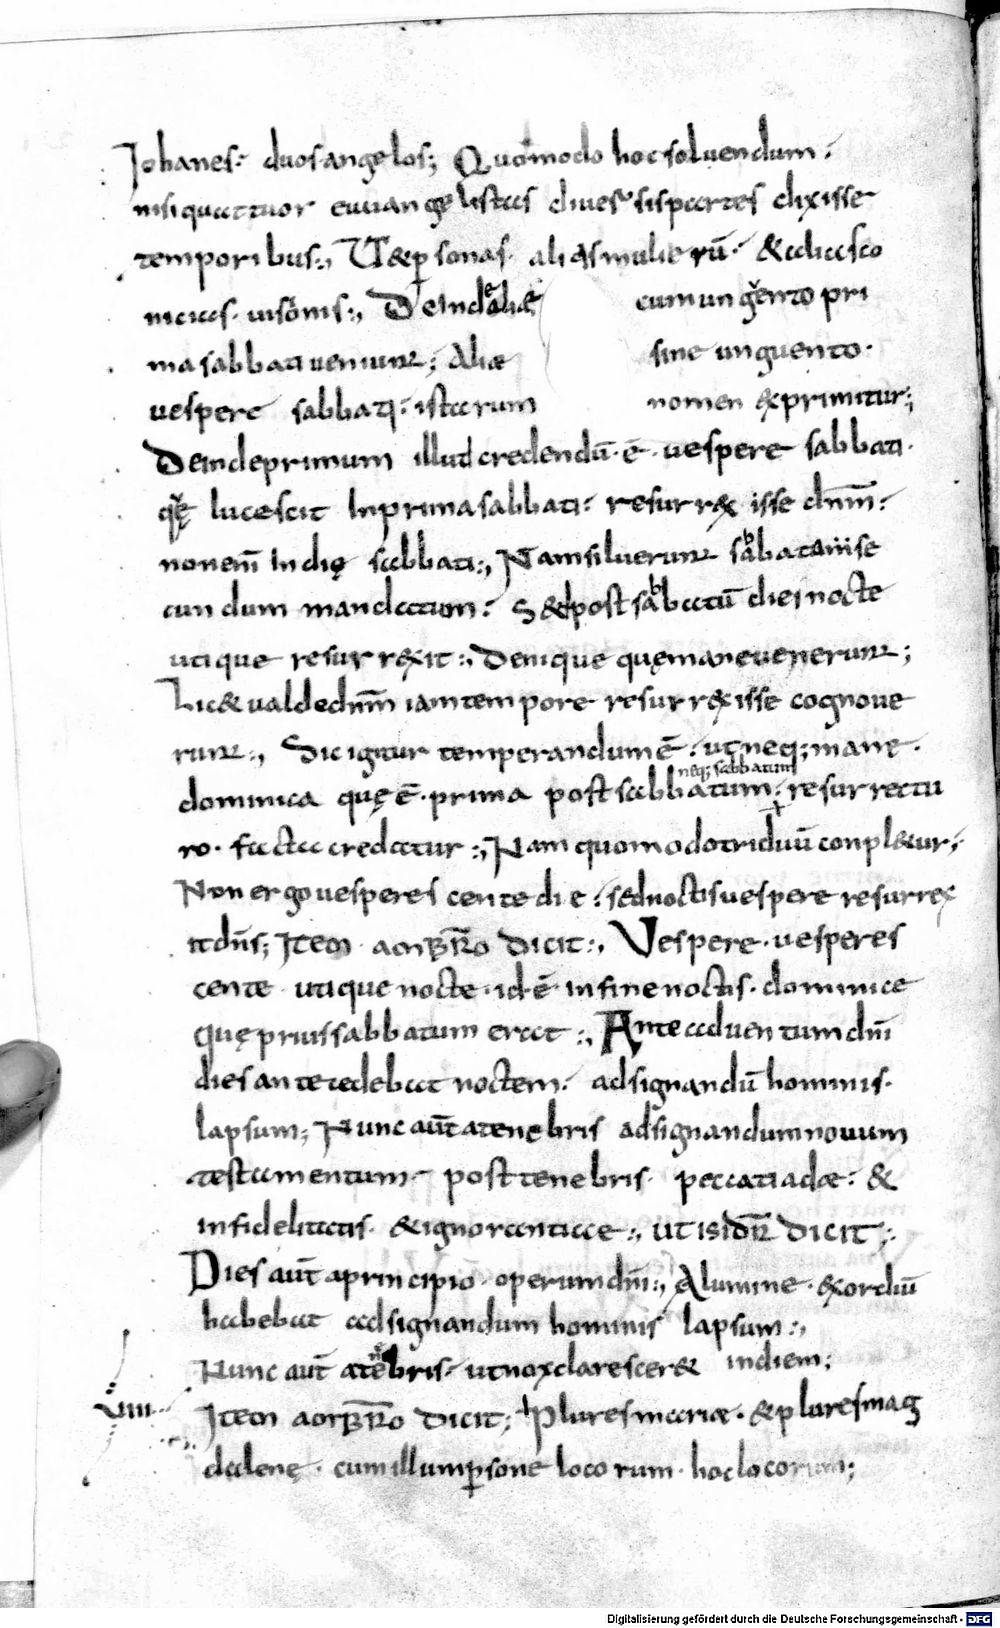 Iohanes· duos angelos; Quomodo hoc soluendum·
nisi quattuor euuangelistas diuersis partes dixisse
temporibus:, Vt & ꝑsonas· alias mulierū· & alias
uisionis:, Deinde aliæ cum ungento pri
ma sabbati ueniunt; Aliæ sine unguento·
uespere sabbati· istarum nomen exprimitur;
Deinde primum illud credendū· ē· uespere sabbati·
quę lucescit In prima sabbati· resurrexisse dn̄m·
non enī In dię sabbati:, Nam siluerunt sabbato se
cundum mandatum· S& post sabbatū diei nocte
utique resurrexit:, Denique quę mane uenerunt;
Lic& ualde dn̄m iam tempore resurrexisse cognoue
runt:, Sic igitur temperandum ē· ut neq; mane·
neq; sabbatum
dominica quę ē· prima post sabbatum· resurrectu
ro· facta credatur:, Nam quomodo triduū conpl&ur·
Non ergo uesperescente die· sed noctis uespere resurrex
it dn̄s; Item dicit:, Vespere· uesperes
cente utique nocte· id ē· in fine noctis· dominice
quę prius sabbatum erat:, Ante aduentum dn̄i
dies antecedebat noctem· ad signandū hominis·
lapsum; Nunc aūt a tenebris ad signandum nouum
testamentum· post tenebris· peccati adæ· &
infidelitatis· & ignorantiae:, ut isidōr dicit·
Dies aūt a principio· operum dn̄i:, A lumine· exordiū
habebat ad signandum hominis lapsum:,
Nunc aūt a tenebris· ut nox claresceret in diem;
VIIII Item dicit; Plures mariæ· & plures mag
dalenę· cum illum ꝑsone locorum· hoc locorum;